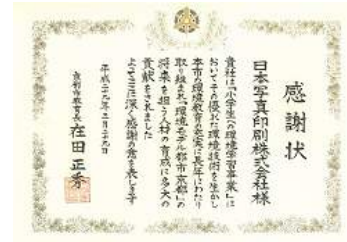 感謝状
日本写真印刷株式会社様
貴社は「小学生への環境学習事業」に
おいてその優れた環境技術を生かし
本市の環境教育の充実に長年にわたり
取り組まれ「環境モデル都市京都」の
将来を担う人材の育成に多大の
貢献をされました
よってここに深く感謝の意を表します
平成二十九年三月二十九日
京都市教育長 在田正秀